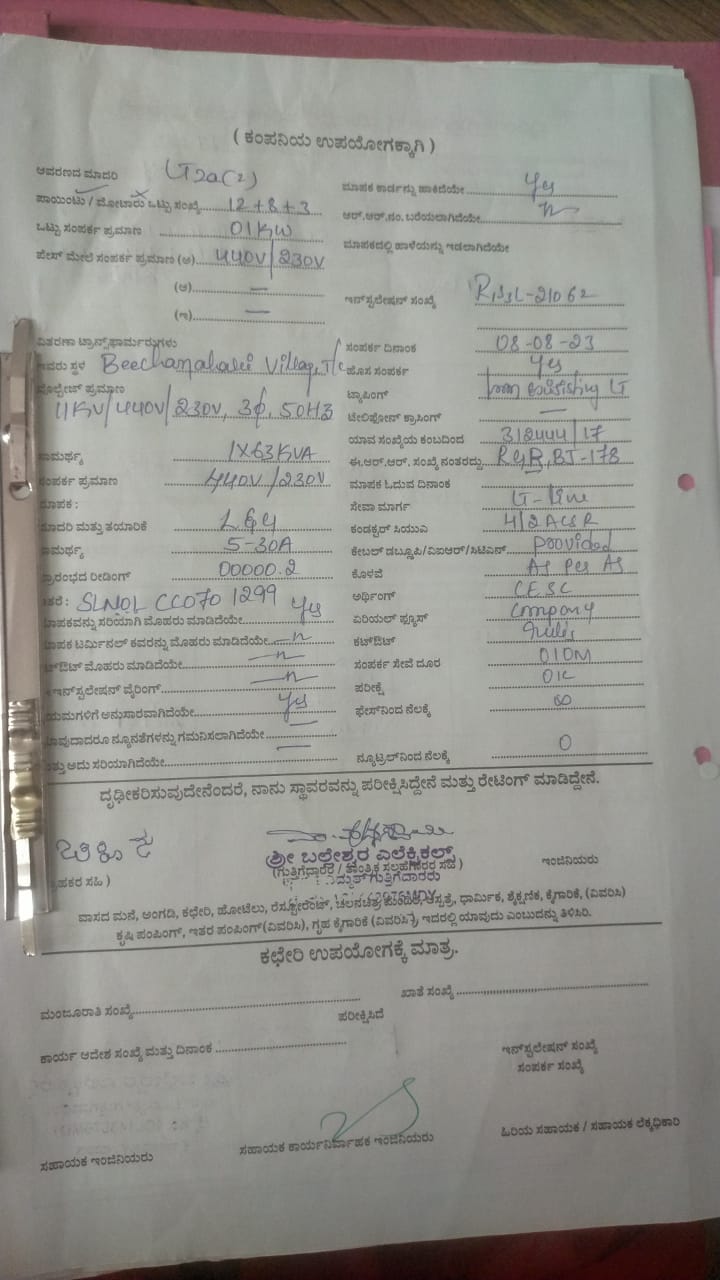 ( ಕಂಪನಿಯ ಉಪಯೋಗಕ್ಕಾಗಿ )
ಆವರಣದ ಮಾದರಿ LT2a(2)
ಪಾಯಿಂಟು / ಮೋಟಾರು ಒಟ್ಟು ಸಂಖ್ಯೆ 12+8+3
ಒಟ್ಟು ಸಂಪರ್ಕ ಪ್ರಮಾಣ 01KW
ಫೇಸ್ ಮೇಲೆ ಸಂಪರ್ಕ ಪ್ರಮಾಣ (ಅ) 440V/230V
(ಆ) —
(ಇ) —
ವಿತರಣಾ ಟ್ರಾನ್ಸ್‌ಫಾರ್ಮರುಗಳು
ಇವರು ಸ್ಥಳ Village, T/c
ವೋಲ್ಟೇಜ್ ಪ್ರಮಾಣ
11KV/440V/230V, 3ϕ, 50HZ
ಸಾಮರ್ಥ್ಯ 1X63KVA
ಸಂಪರ್ಕ ಪ್ರಮಾಣ 440V/230V
ಮಾಪಕ :
ಮಾದರಿ ಮತ್ತು ತಯಾರಿಕೆ L&G
ಸಾಮರ್ಥ್ಯ 5-30A
ಪ್ರಾರಂಭದ ರೀಡಿಂಗ್ 00000.2
ಇತರೆ : SLNOL CC070 1299
ಮಾಪಕವನ್ನು ಸರಿಯಾಗಿ ಮೊಹರು ಮಾಡಿದೆಯೇ Yes
ಮಾಪಕ ಟರ್ಮಿನಲ್ ಕವರನ್ನು ಮೊಹರು ಮಾಡಿದೆಯೇ —n—
ಕಟ್‌ಔಟ್ ಮೊಹರು ಮಾಡಿದೆಯೇ —n—
ಇನ್ಸ್‌ಟಲೇಷನ್ ವೈರಿಂಗ್ —n—
ನಿಯಮಗಳಿಗೆ ಅನುಸಾರವಾಗಿದೆಯೇ Yes
ಯಾವುದಾದರೂ ನ್ಯೂನತೆಗಳನ್ನು ಗಮನಿಸಲಾಗಿದೆಯೇ —
ಮತ್ತು ಅದು ಸರಿಯಾಗಿದೆಯೇ —
ಮಾಪಕ ಕಾರ್ಡನ್ನು ಹಾಕಿದೆಯೇ Yes
ಆರ್.ಆರ್.ನಂ. ಬರೆಯಲಾಗಿದೆಯೇ n
ಮಾಪಕದಲ್ಲಿ ಹಾಳೆಯನ್ನು ಇಡಲಾಗಿದೆಯೇ
ಇನ್ಸ್‌ಟಲೇಷನ್ ಸಂಖ್ಯೆ
ಸಂಪರ್ಕ ದಿನಾಂಕ 08-08-23
ಹೊಸ ಸಂಪರ್ಕ Yes
ಟ್ಯಾಪಿಂಗ್ from LT
ಟೆಲಿಫೋನ್ ಕ್ರಾಸಿಂಗ್ —
ಯಾವ ಸಂಖ್ಯೆಯ ಕಂಬದಿಂದ 312444/17
ಈ.ಆರ್.ಆರ್. ಸಂಖ್ಯೆ ನಂತರದ್ದು BJ-178
ಮಾಪಕ ಓದುವ ದಿನಾಂಕ
ಸೇವಾ ಮಾರ್ಗ LT-line
ಕಂಡಕ್ಟರ್ ಸಿಯುವಿ 4/2 ACSR
ಕೇಬಲ್ ಡಬ್ಲ್ಯೂಪಿ/ವಿಐಆರ್/ಸಿಟಿಎಸ್ Provided
ಕೊಳವೆ As Per As
ಅರ್ಥಿಂಗ್ CESC
ಏರಿಯಲ್ ಫ್ಯೂಸ್ Company
ಕಟ್‌ಔಟ್
ಸಂಪರ್ಕ ಸೇವೆ ದೂರ 010M
ಪರೀಕ್ಷೆ OK
ಫೇಸ್‌ನಿಂದ ನೆಲಕ್ಕೆ ∞
ನ್ಯೂಟ್ರಲ್‌ನಿಂದ ನೆಲಕ್ಕೆ 0
ದೃಢೀಕರಿಸುವುದೇನೆಂದರೆ, ನಾನು ಸ್ಥಾವರವನ್ನು ಪರೀಕ್ಷಿಸಿದ್ದೇನೆ ಮತ್ತು ರೇಟಿಂಗ್ ಮಾಡಿದ್ದೇನೆ.
ಶ್ರೀ ಬಲ್ಲೇಶ್ವರ ಎಲೆಕ್ಟ್ರಿಕಲ್ಸ್
ಗ್ರಾಹಕರ ಸಹಿ )
(ಗುತ್ತಿಗೆದಾರರ / ತಾಂತ್ರಿಕ ಸಲಹೆಗಾರರ ಸಹಿ )
ಇಂಜಿನಿಯರು
ವಾಸದ ಮನೆ, ಅಂಗಡಿ, ಕಛೇರಿ, ಹೋಟೆಲು, ರೆಸ್ಟೋರೆಂಟ್, ಚಲನಚಿತ್ರ ಮಂದಿರ, ಆಸ್ಪತ್ರೆ, ಧಾರ್ಮಿಕ, ಶೈಕ್ಷಣಿಕ, ಕೈಗಾರಿಕೆ, (ವಿವರಿಸಿ)
ಕೃಷಿ ಪಂಪಿಂಗ್, ಇತರ ಪಂಪಿಂಗ್ (ವಿವರಿಸಿ), ಗೃಹ ಕೈಗಾರಿಕೆ (ವಿವರಿಸಿ) ಇದರಲ್ಲಿ ಯಾವುದು ಎಂಬುದನ್ನು ತಿಳಿಸಿರಿ.
ಕಛೇರಿ ಉಪಯೋಗಕ್ಕೆ ಮಾತ್ರ.
ಮಂಜೂರಾತಿ ಸಂಖ್ಯೆ
ಖಾತೆ ಸಂಖ್ಯೆ
ಪರೀಕ್ಷಿಸಿದೆ
ಕಾರ್ಯ ಆದೇಶ ಸಂಖ್ಯೆ ಮತ್ತು ದಿನಾಂಕ
ಇನ್ಸ್‌ಟಲೇಷನ್ ಸಂಖ್ಯೆ
ಸಂಪರ್ಕ ಸಂಖ್ಯೆ
ಸಹಾಯಕ ಇಂಜಿನಿಯರು
ಸಹಾಯಕ ಕಾರ್ಯನಿರ್ವಾಹಕ ಇಂಜಿನಿಯರು
ಹಿರಿಯ ಸಹಾಯಕ / ಸಹಾಯಕ ಲೆಕ್ಕಧಿಕಾರಿ